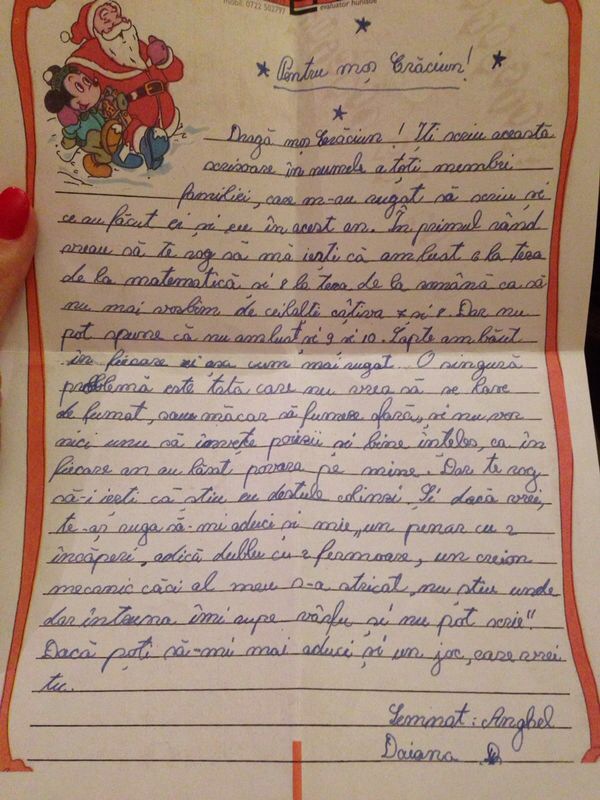 mobil: 0722 502797
evaluator
Pentru moș Crăciun!
Dragă moș Crăciun! Îți scriu această
scrisoare în numele a toți membri
familiei, care m-au rugat să scriu și
ce au făcut ei și eu în acest an. În primul rând
vreau să te rog să mă ierți că am luat 6 la teza
de la matematică și 8 la teza de la română ca să
nu mai vorbim de ceilalți câțiva și 8. Dar nu
pot spune că nu am luat și 9 și 10. Lapte am băut
în fiecare zi așa cum mai rugat... O singură
problemă este tata care nu vrea să se lase
de fumat, sau măcar să fumeze afară, și nu vor
nici unu să învețe poezii și bine înteles, ca în
fiecare an au lăsat povara pe mine. Dar te rog
să-i ierți că știu eu destule colinzi. Și dacă vrei,
te-aș ruga să-mi aduci și mie „un penar cu 2
încăperi, adică dublu cu 2 fermoare, un creion
mecanic căci al meu s-a stricat, nu știu unde
dar întruna îmi rupe vârfu și nu pot scrie"
Dacă poți să-mi mai aduci și un joc, care vrei
tu.
Semnat: Anghel
Daiana